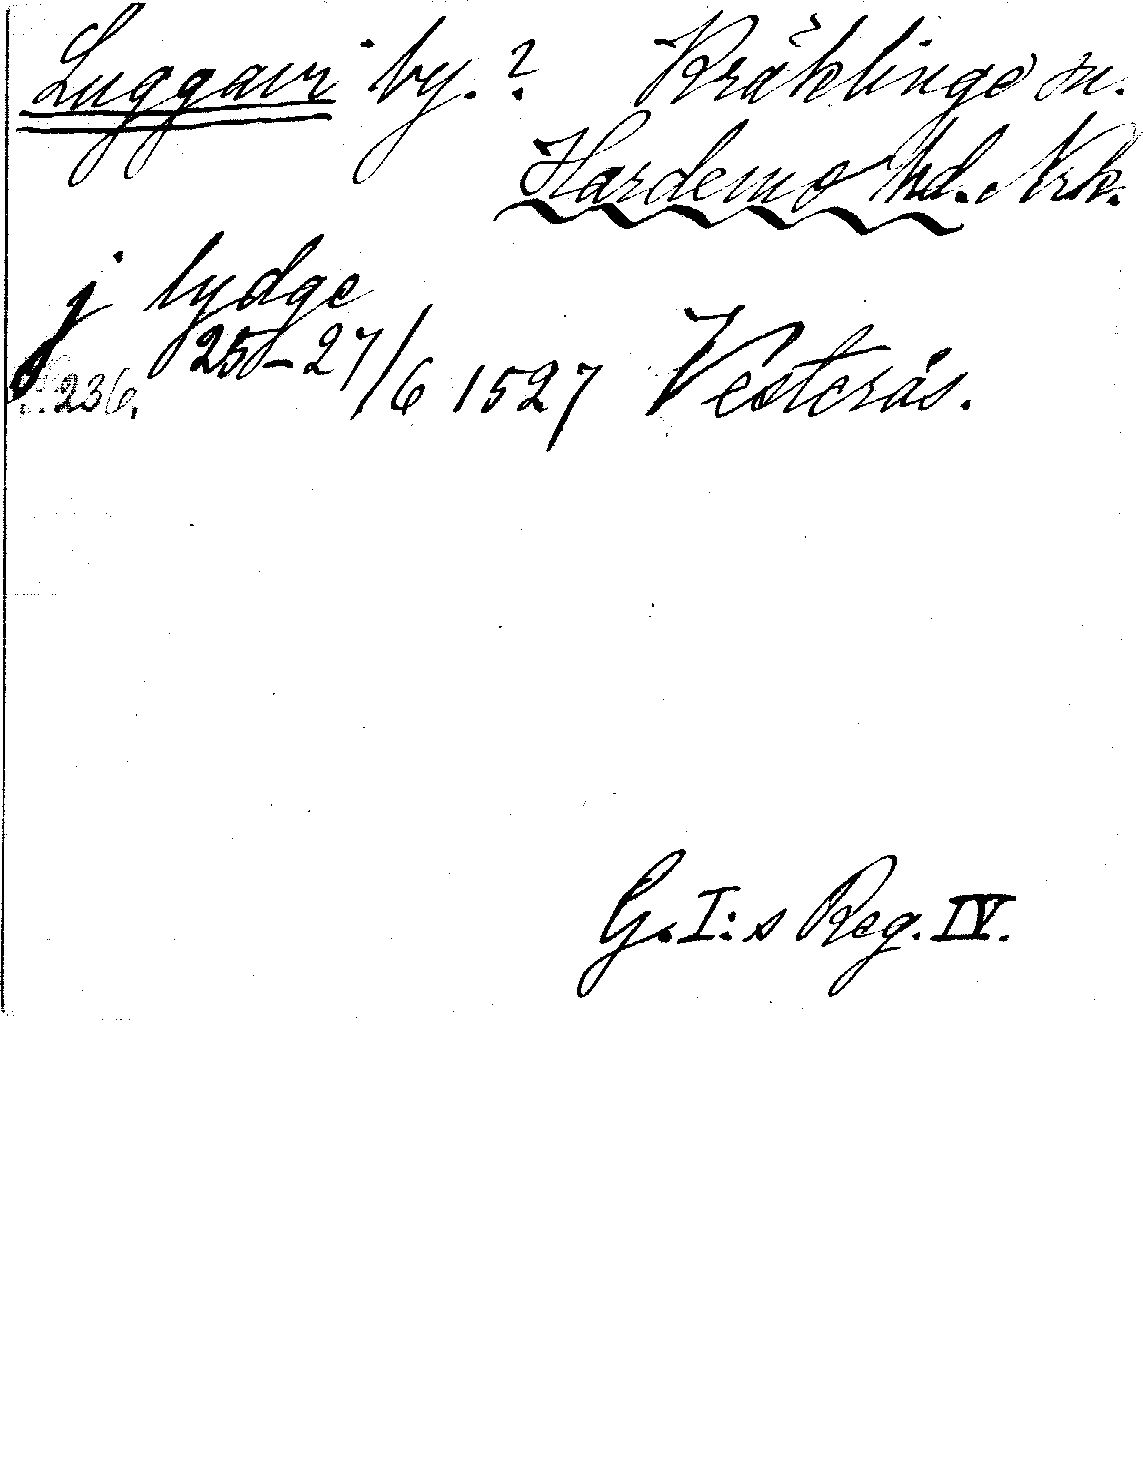 Luggavi by.? Kräklinge sn.
Hardemo hd. Nrk.
j lydge
25-27/6 1527 Vesterås.
s. 236.
G. I:s Reg. IV.